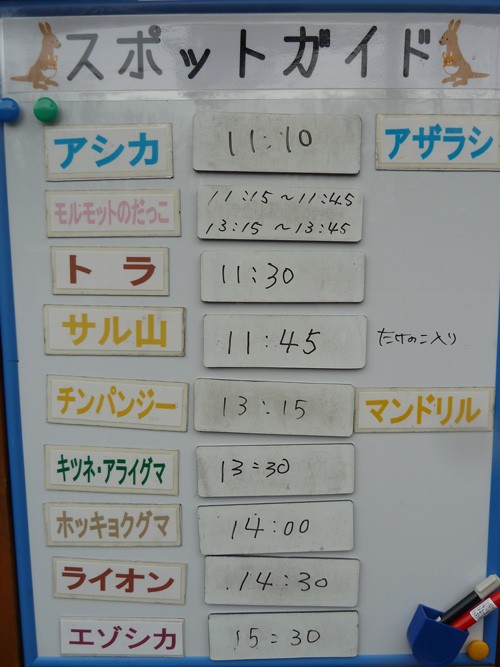 スポットガイド
アシカ 11:10 アザラシ
モルモットのだっこ 11:15 ~ 11:45
13:15 ~ 13:45
トラ 11:30
サル山 11:45 たけのこ入り
チンパンジー 13:15 マンドリル
キツネ・アライグマ 13:30
ホッキョクグマ 14:00
ライオン 14:30
エゾシカ 15:30